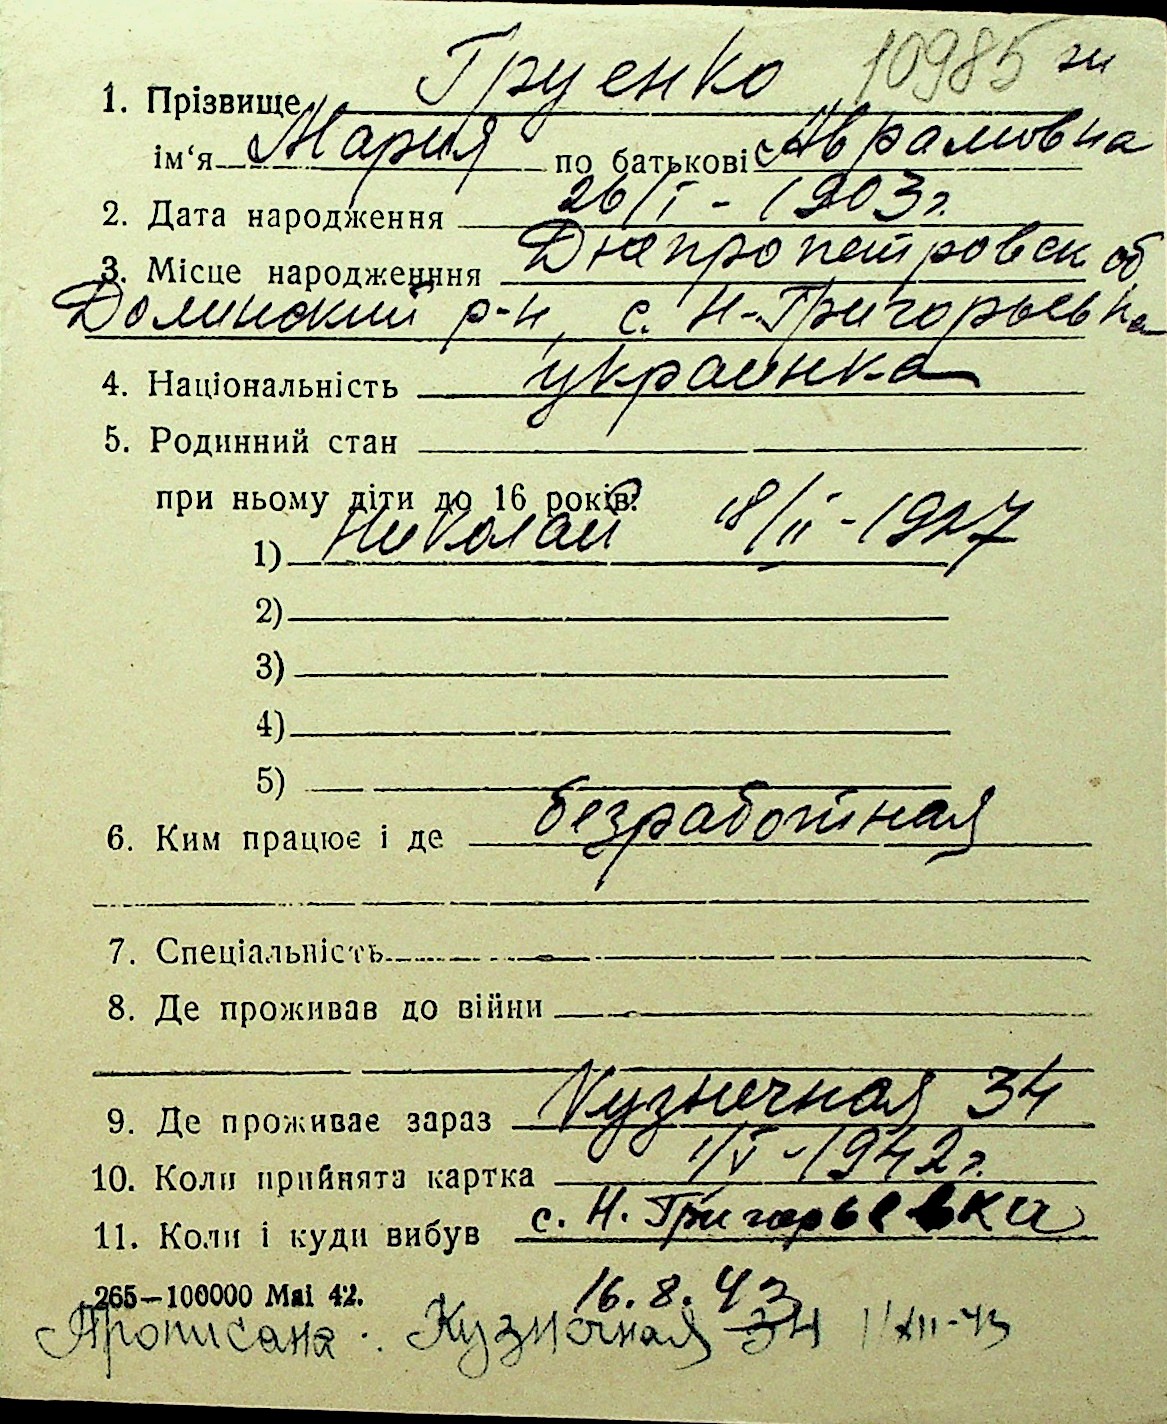 1. Прізвище Груенко 10985
ім‘я Мария по батькові Аврамовна
2. Дата народження 26/I - 1903 г.
3. Місце народженння Днепропетровск об
Долинский р-н, с. Н-Григорьевка
4. Національність украинка
5. Родинний стан
при ньому діти до 16 років:
1) Николай 18/II-1927
2)
3)
4)
5)
6. Ким працює і де безработная
7. Спеціальність
8. Де проживав до війни
9. Де проживає зараз Кузнечная 34
10. Коли прийнята картка 1/V-1942 г.
11. Коли і куди вибув с. Н. Григорьевка
265—100000 Mai 42. 16.8.43
Прописана: Кузнечная 34 1/XII-43